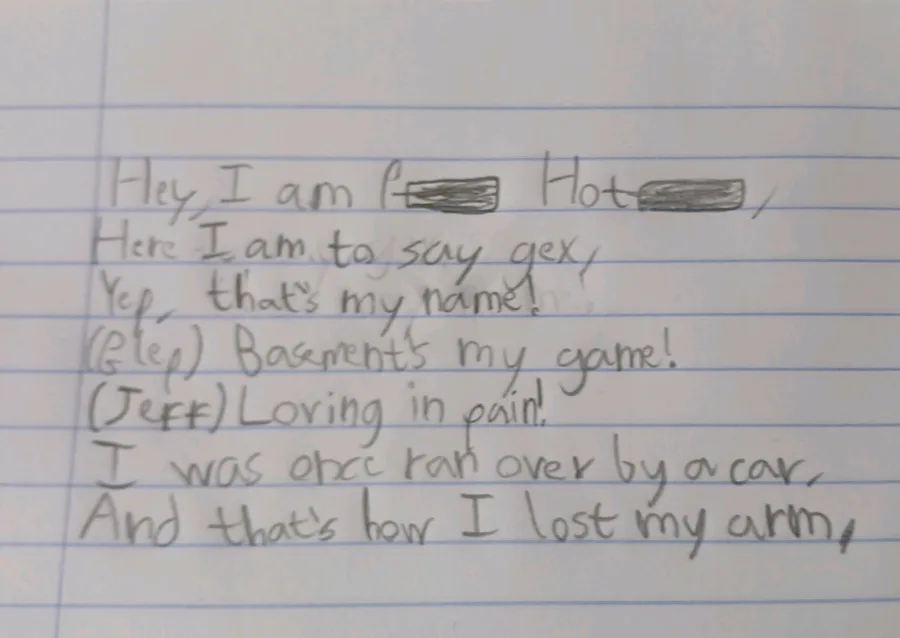 Hey, I am Hot
Here I am to say gex,
Yep, that's my name!
(Blep) Basement's my game!
(Jeff) Loving in pain!
I was once ran over by a car,
And that's how I lost my arm,